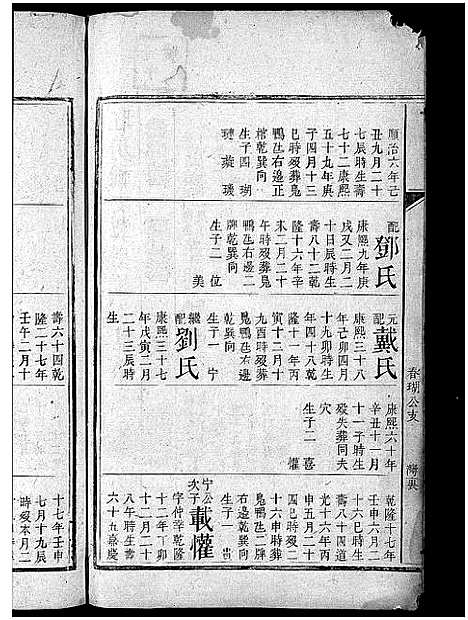 春瑚公支
順治六年己
丑九月二十
七辰時生壽
七十二康熙
五十九年庚
子四月十三
巳時歿葬鳬
鴨乪右邊正
棺乾巽向
生子四 瑚
璉 璇 璣
配鄧氏
康熙九年庚
戌又二月二
十日辰時生
壽八十二乾
隆十六年辛
未二月二十
午時歿葬鳬
鴨乪右邊二
牌乾巽向
生子二 位
美
元配戴氏
康熙三十八
年己卯四月
十九卯時生
年四十八乾
隆十一年丙
寅十二月十
九酉時歿葬
鳬鴨乪右邊
乾巽向
生子一 宁
繼配劉氏
康熙三十七
年戊寅二月
二十三辰時
生
康熙六十年
辛丑十一月
十一子時生
歿失葬同夫
穴
生子二 喜
懽
乾隆十七年
壬申六月二
十六巳時生
壽八十四道
光十六年丙
申五月二十
十六申時葬
鳬鴨乪二牌
右邊乾巽向
生子一 貴
宁公次子載懽
字仲幸乾隆
十二年丁卯
十二月二十
八午時生壽
六十五嘉慶
壽六十四乾
隆二十七年
壬午二月十
十七年壬申
七月十九辰
時歿本月二